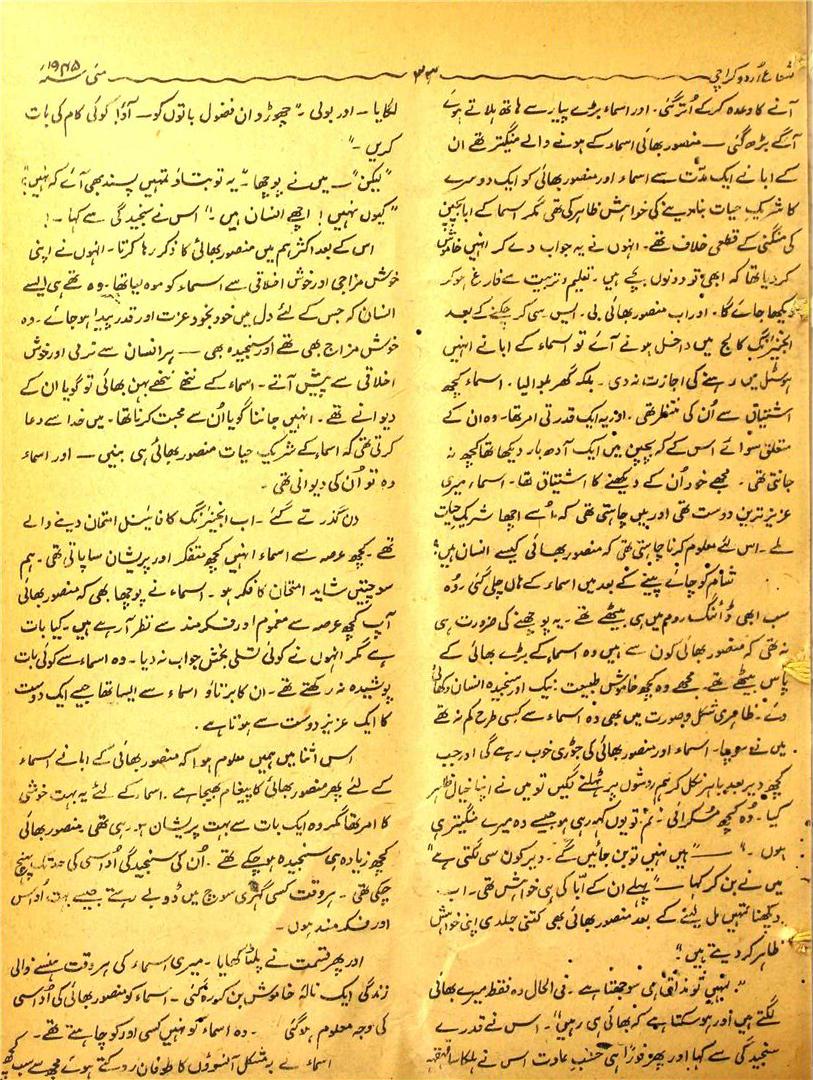 شعاعِ اُردو کراچی
۳۳
مئی سنہ ۱۹۴۵ء
آنے کا وعدہ کر کے اُتر گئی۔ اور اسماء بڑے پیار سے ہاتھ ہلاتے ہوئے
آگے بڑھ گئی — منصور بھائی اسماء کے ہونے والے منگیتر تھے ان
کے ابا نے ایک مدّت سے اسماء اور منصور بھائی کو ایک دوسرے
کا شریکِ حیات بنا دینے کی خواہش ظاہر کی تھی مگر اسماء کے ابا بچپن
کی منگنی کے قطعی خلاف تھے۔ انہوں نے یہ جواب دے کر انہیں خاموش
کر دیا تھا کہ ابھی تو دونوں بچے ہیں۔ تعلیم و تربیت سے فارغ ہو کر
دیکھا جائے گا۔ اور اب منصور بھائی بی۔ ایس سی کر چکنے کے بعد
انجینئرنگ کالج میں داخل ہونے آئے تو اسماء کے ابا نے انہیں
ہوسٹل میں رہنے کی اجازت نہ دی۔ بلکہ گھر بلوا لیا۔ اسماء کچھ
اشتیاق سے اُن کی منتظر تھی۔ اور یہ ایک قدرتی امر تھا۔ وہ ان کے
متعلق سوائے اس کے کہ بچپن میں ایک آدھ بار دیکھا تھا کچھ نہ
جانتی تھی۔ مجھے خود اُن کے دیکھنے کا اشتیاق تھا۔ اسماء میری
عزیز ترین دوست تھی اور میں چاہتی تھی کہ اُسے اچھا شریکِ حیات
ملے۔ اس لئے معلوم کرنا چاہتی تھی کہ منصور بھائی کیسے انسان ہیں؟
شام کو چائے پینے کے بعد میں اسماء کے ہاں چلی گئی۔ وُہ
سب ابھی ڈائننگ روم میں ہی بیٹھے تھے۔ یہ پوچھنے کی ضرورت ہی
نہ تھی کہ منصور بھائی کون سے ہیں وہ اسماء کے بڑے بھائی کے
پاس بیٹھے تھے۔ مجھے وہ کچھ خاموش طبیعت۔ نیک اور سنجیدہ انسان دکھائی
دئے۔ ظاہری شکل و صورت میں بھی وہ اسماء سے کسی طرح کم نہ تھے
میں نے سوچا۔ اسماء اور منصور بھائی کی جوڑی خوب رہے گی اور جب
کچھ دیر بعد باہر نکل کر ہم روشوں پر ٹہلنے لگیں تو میں نے اپنا خیال ظاہر
کیا۔ وُہ کچھ مُسکرائی۔ تم تو یوں کہہ رہی ہو جیسے وہ میرے منگیتر ہی
ہوں۔" — "ہیں نہیں تو بن جائیں گے۔ دیر کون سی لگتی ہے"
میں نے بن کر کہا — "پہلے ان کے ابّا کی ہی خواہش تھی۔ اب
دیکھنا تمہیں مل لینے کے بعد منصور بھائی بھی کتنی جلدی اپنی خواہش
ظاہر کر دیتے ہیں"
"نہیں تو مذاق ہی سوجھتا ہے۔ فی الحال وہ فقط میرے بھائی
لگتے ہیں اور ہو سکتا ہے کہ بھائی ہی رہیں"۔ اس نے قدرے
سنجیدگی سے کہا اور پھر فوراً ہی حسبِ عادت اس نے ہلکا سا قہقہہ
لگایا۔ اور بولی۔ "چھوڑو ان فضول باتوں کو — آؤ! کوئی کام کی بات
کریں۔"
"لیکن" — میں نے پوچھا۔ "یہ تو بتاؤ تمہیں پسند بھی آئے کہ نہیں؟"
"کیوں نہیں! اچھے انسان ہیں۔" اس نے سنجیدگی سے کہا۔!
اس کے بعد اکثر ہم میں منصور بھائی کا ذکر رہا کرتا۔ انہوں نے اپنی
خوش مزاجی اور خوش اخلاقی سے اسماء کو موہ لیا تھا۔ وہ تھے ہی ایسے
انسان کہ جس کے لئے دل میں خود بخود عزت اور قدر پیدا ہو جائے۔ وہ
خوش مزاج بھی تھے اور سنجیدہ بھی — ہر انسان سے نرمی اور خوش
اخلاقی سے پیش آتے۔ اسماء کے ننھے ننھے بہن بھائی تو گویا ان کے
دیوانے تھے۔ انہیں جاننا گویا اُن سے محبت کرنا تھا۔ میں خدا سے دعا
کرتی تھی کہ اسماء کے شریکِ حیات منصور بھائی ہی بنیں — اور اسماء
وہ تو اُن کی دیوانی تھی۔
دن گذرتے گئے۔ اب انجینئرنگ کا فائینل امتحان دینے والے
تھے۔ کچھ عرصہ سے اسماء انہیں کچھ متفکر اور پریشان سا پاتی تھی۔ ہم
سوچتیں شاید امتحان کا فکر ہو۔ اسماء نے پوچھا بھی کہ منصور بھائی
آپ کچھ عرصہ سے مغموم اور فکر مند سے نظر آ رہے ہیں۔ کیا بات
ہے مگر انہوں نے کوئی تسلی بخش جواب نہ دیا۔ وہ اسماء سے کوئی بات
پوشیدہ نہ رکھتے تھے۔ ان کا برتاؤ اسماء سے ایسا تھا جیسے ایک دوست
کا ایک عزیز دوست سے ہوتا ہے۔
اس اثنا میں ہمیں معلوم ہوا کہ منصور بھائی کے ابا نے اسماء
کے لئے پھر منصور بھائی کا پیغام بھیجا ہے۔ اسماء کے لئے یہ بہت خوشی
کا امر تھا مگر وہ ایک بات سے بہت پریشان ہو رہی تھی۔ منصور بھائی
کچھ زیادہ ہی سنجیدہ ہو چکے تھے۔ اُن کی سنجیدگی اُداسی کی حد تک پہنچ
چکی تھی۔ ہر وقت کسی گہری سوچ میں ڈوبے رہتے جیسے بہت اُداس
اور فکر مند ہوں۔
اور پھر قسمت نے پلٹا کھایا۔ میری اسماء کی ہر وقت ہنسنے والی
زندگی ایک نالۂ خاموش بن کر رہ گئی۔ اسماء کو منصور بھائی کی اُداسی
کی وجہ معلوم ہو گئی۔ وہ اسماء کو نہیں کسی اور کو چاہتے تھے۔
اسماء نے بہ مشکل آنسوؤں کا طوفان روکتے ہوئے مجھ سے سب کچھ